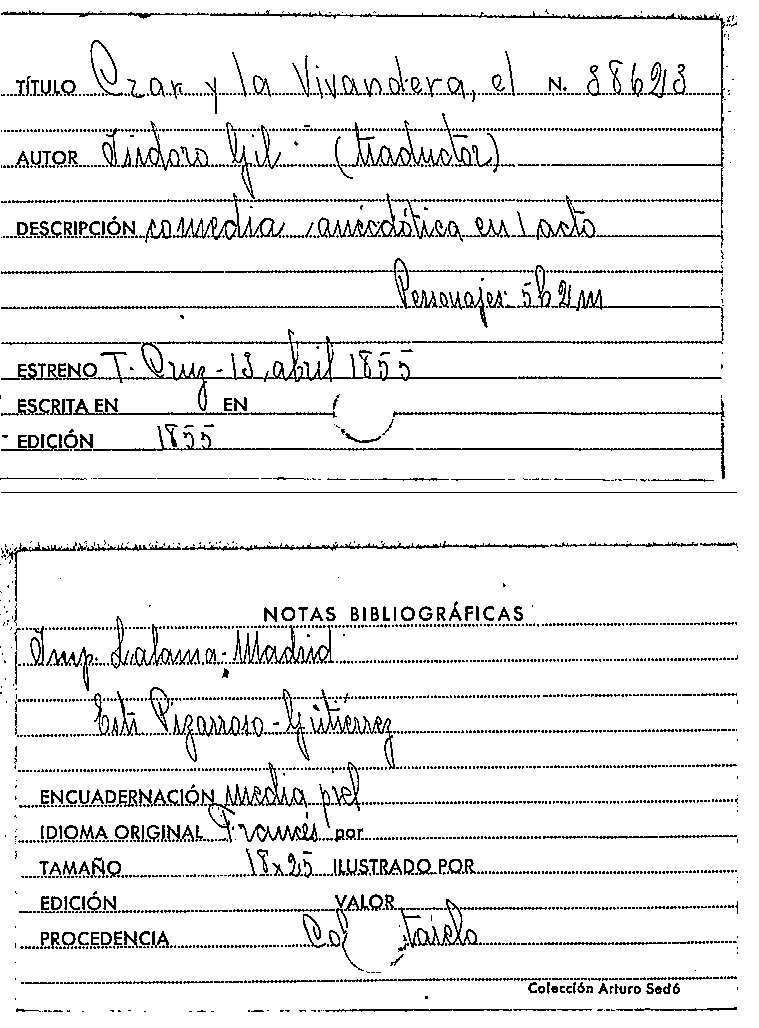 TÍTULO Czar y la Vivandera, el N. 38623
AUTOR Isidoro Gil (traductor)
DESCRIPCIÓN comedia anecdótica en 1 acto
Personajes: 5h 2m
ESTRENO T. Cruz - 13, abril 1855
ESCRITA EN EN
EDICIÓN 1855
NOTAS BIBLIOGRÁFICAS
Imp. Lalama - Madrid
Pizarroso - Gutiérrez
ENCUADERNACIÓN media piel
IDIOMA ORIGINAL Francés por
TAMAÑO 18x25 ILUSTRADO POR
EDICIÓN VALOR
PROCEDENCIA Co tarelo
Colección Arturo Sedó